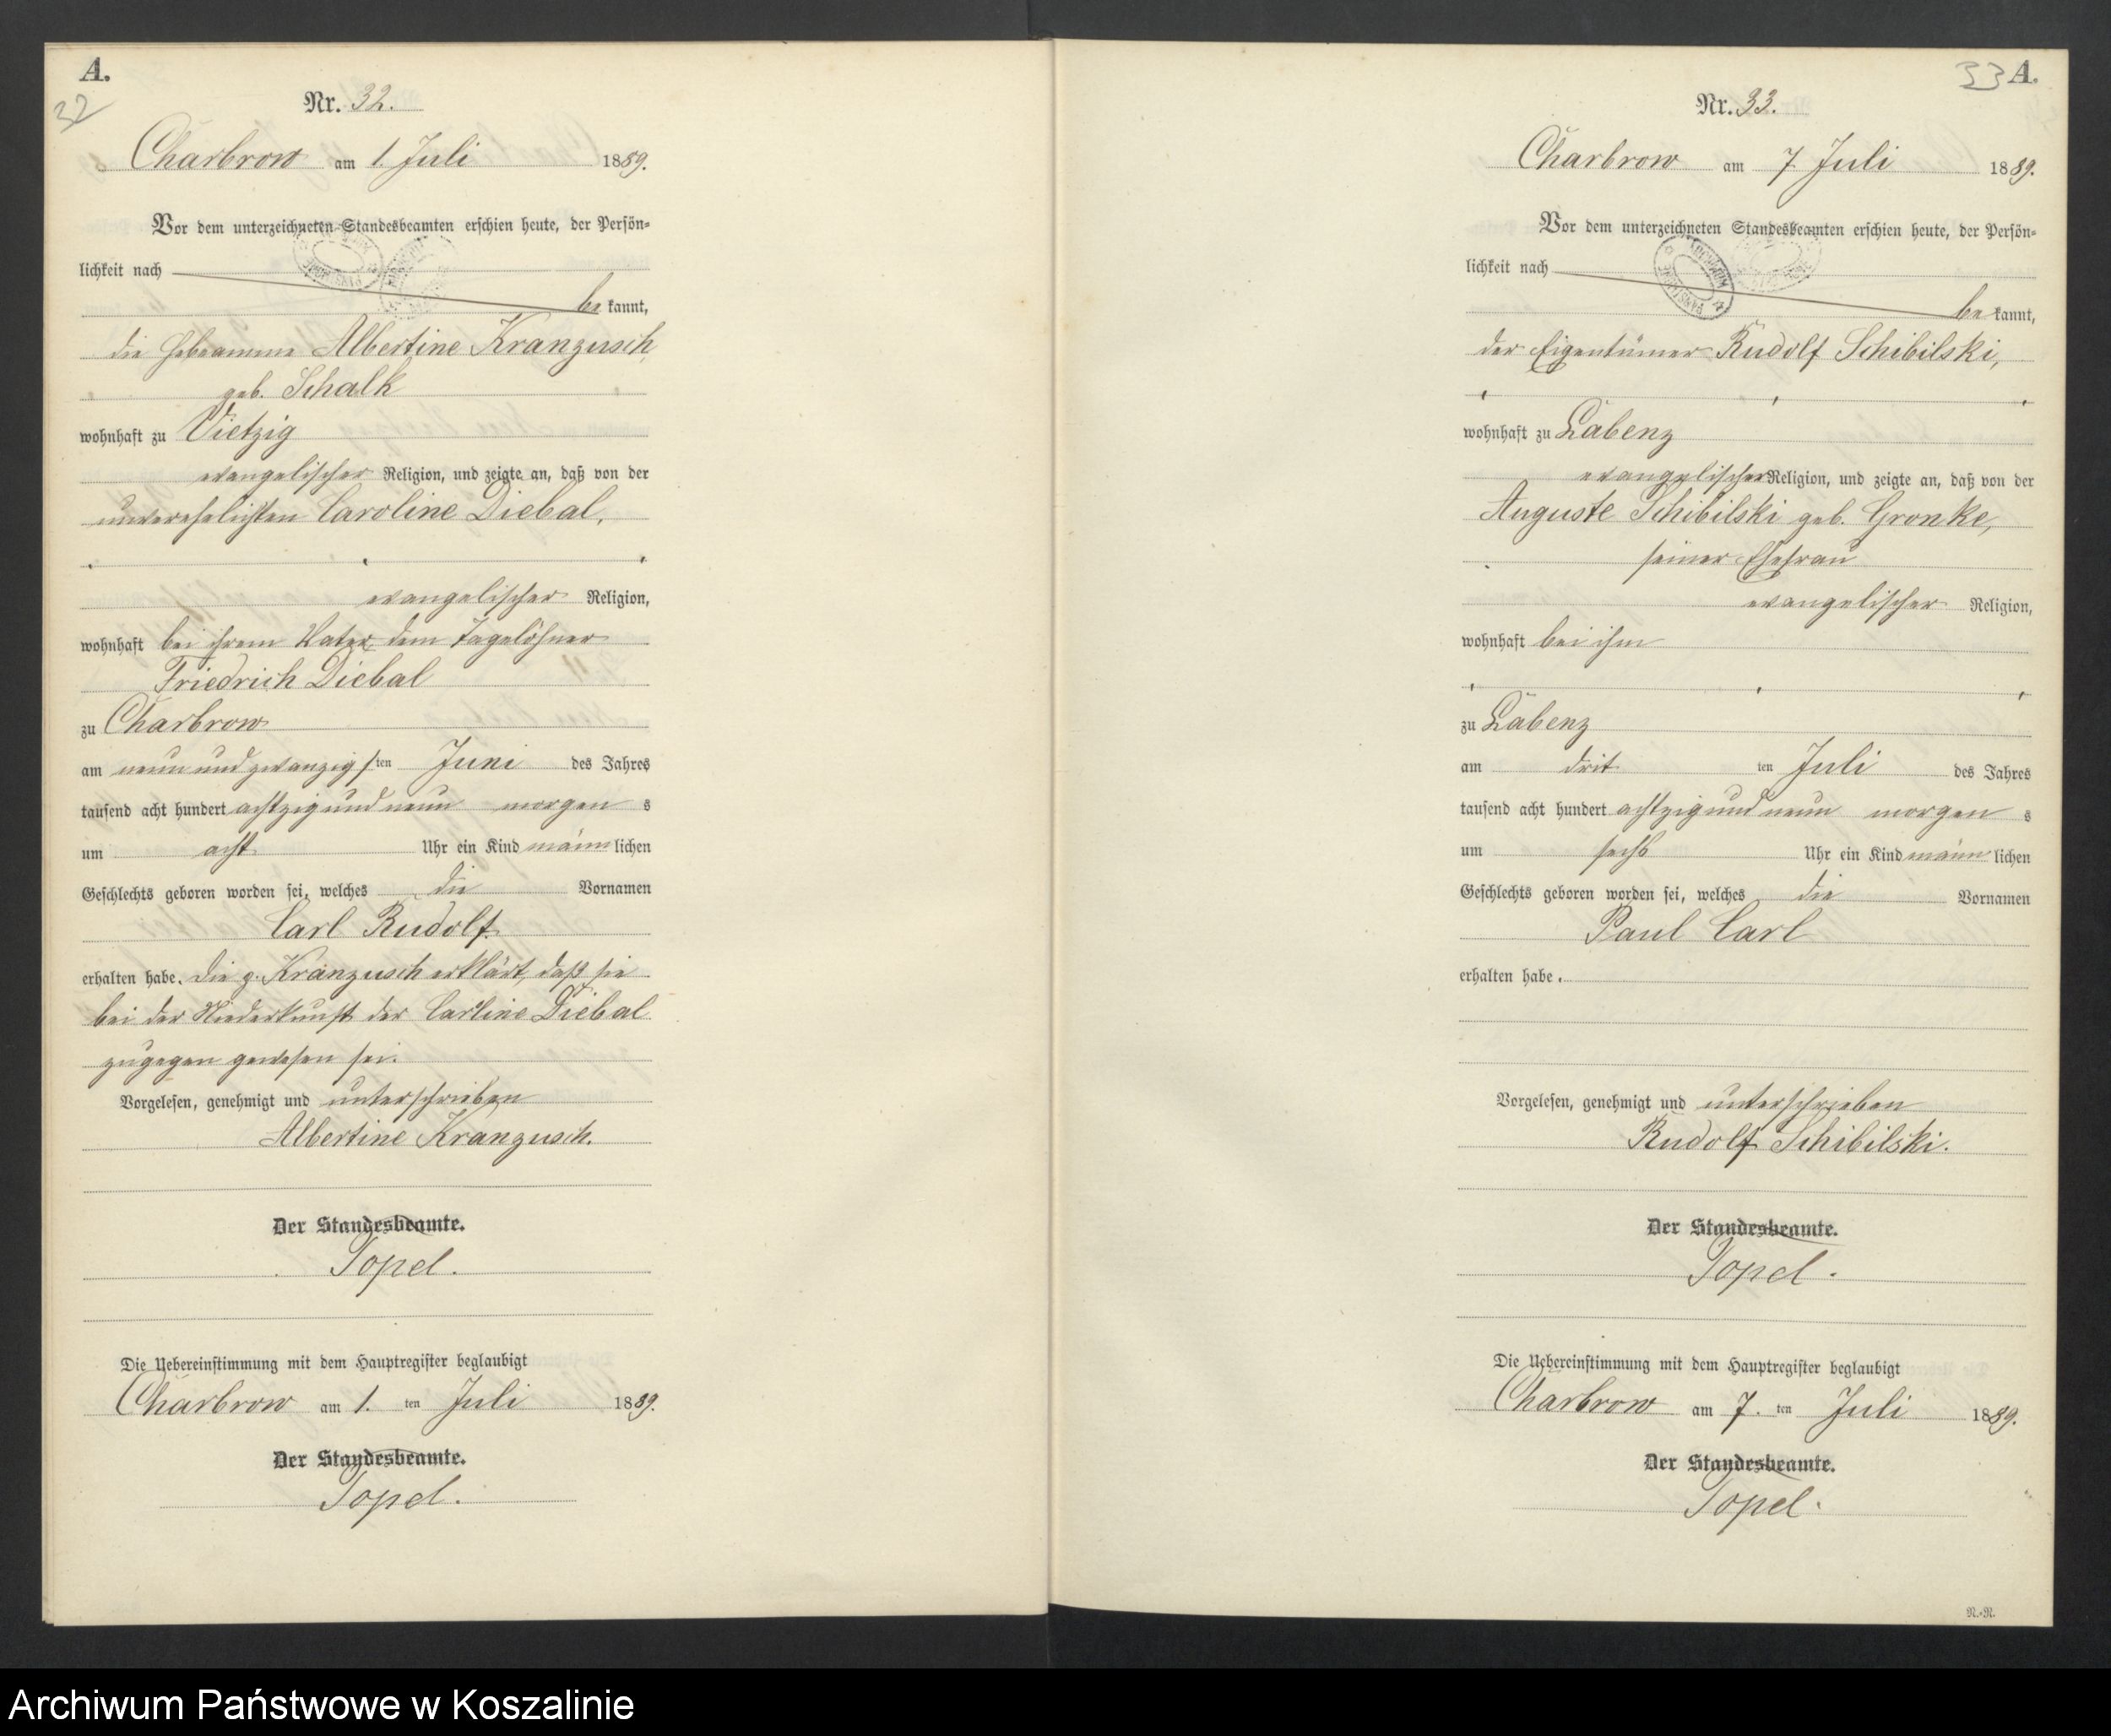 A.
32
Nr. 32.
Charbrow am 1. Juli 1889.
Vor dem unterzeichneten Standesbeamten erschien heute, der Persön=
lichkeit nach
be kannt,
die Hebeamme Albertine Kranzusch,
geb. Schalk
wohnhaft zu Vietzig
evangelischer Religion, und zeigte an, daß von der
unverehelichten Caroline Diebal,
evangelischer Religion,
wohnhaft bei ihrem Vater, dem Tagelöhner
Friedrich Diebal
zu Charbrow
am neun und zwanzigsten Juni des Jahres
tausend acht hundert achtzig und neun morgen s
um acht Uhr ein Kind männlichen
Geschlechts geboren worden sei, welches die Vornamen
Carl Rudolf
erhalten habe. Die p. Kranzusch erklärt, daß sie
bei der Niederkunft der Carline Diebal
zugegen gewesen sei.
Vorgelesen, genehmigt und unterschrieben
Albertine Kranzusch.
Der Standesbeamte.
Topel.
Die Uebereinstimmung mit dem Hauptregister beglaubigt
Charbrow am 1. ten Juli 1889.
Der Standesbeamte.
Topel.
33 A.
Nr. 33.
Charbrow am 7. Juli 1889.
Vor dem unterzeichneten Standesbeamten erschien heute, der Persön=
lichkeit nach
be kannt,
der Eigentümer Rudolf Schibilski,
wohnhaft zu Labenz
evangelischer Religion, und zeigte an, daß von der
Auguste Schibilski geb. Gronke,
seiner Ehefrau
evangelischer Religion,
wohnhaft bei ihm
zu Labenz
am drit ten Juli des Jahres
tausend acht hundert achtzig und neun morgen s
um sechs Uhr ein Kind männlichen
Geschlechts geboren worden sei, welches die Vornamen
Paul Carl
erhalten habe.
Vorgelesen, genehmigt und unterschrieben
Rudolf Schibilski.
Der Standesbeamte.
Topel.
Die Uebereinstimmung mit dem Hauptregister beglaubigt
Charbrow am 7. ten Juli 1889.
Der Standesbeamte.
Topel.
N.=N.
Archiwum Państwowe w Koszalinie